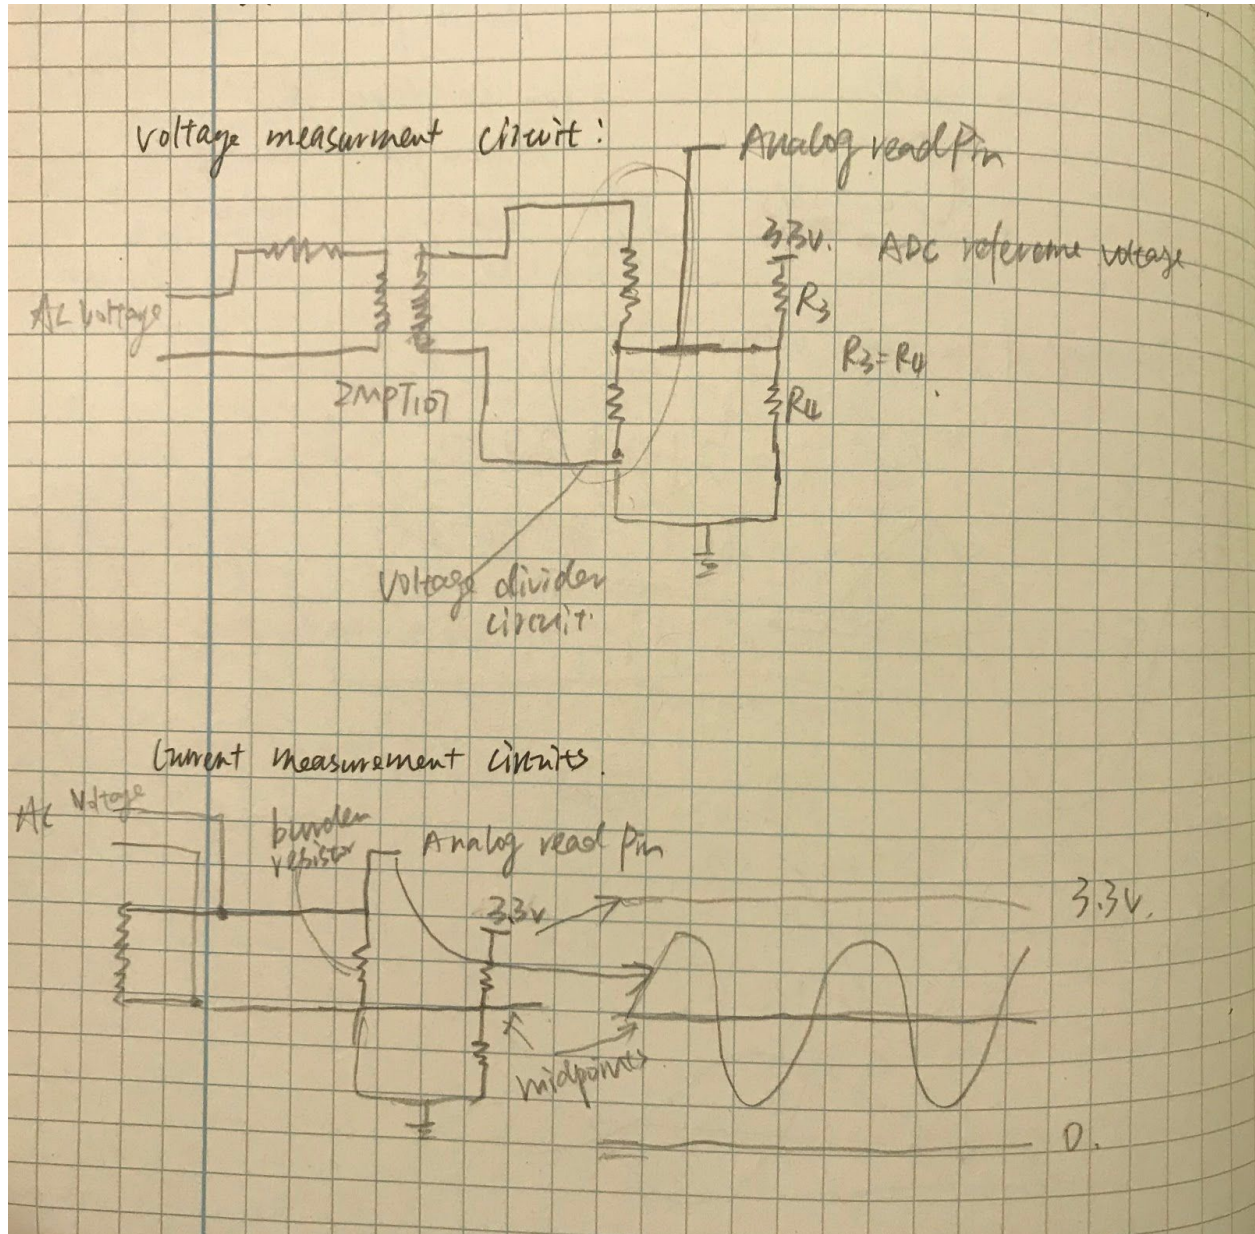 voltage measurment circuit:
Analog read Pin
3.3v. ADC reference voltage
AC Voltage
R3
R3=R4
ZMPT107
R4
Voltage divider
circuit.
Current measurement circuits.
AC Voltage
burden
resistor
Analog read Pin
3.3v
3.3v.
midpoints
0.